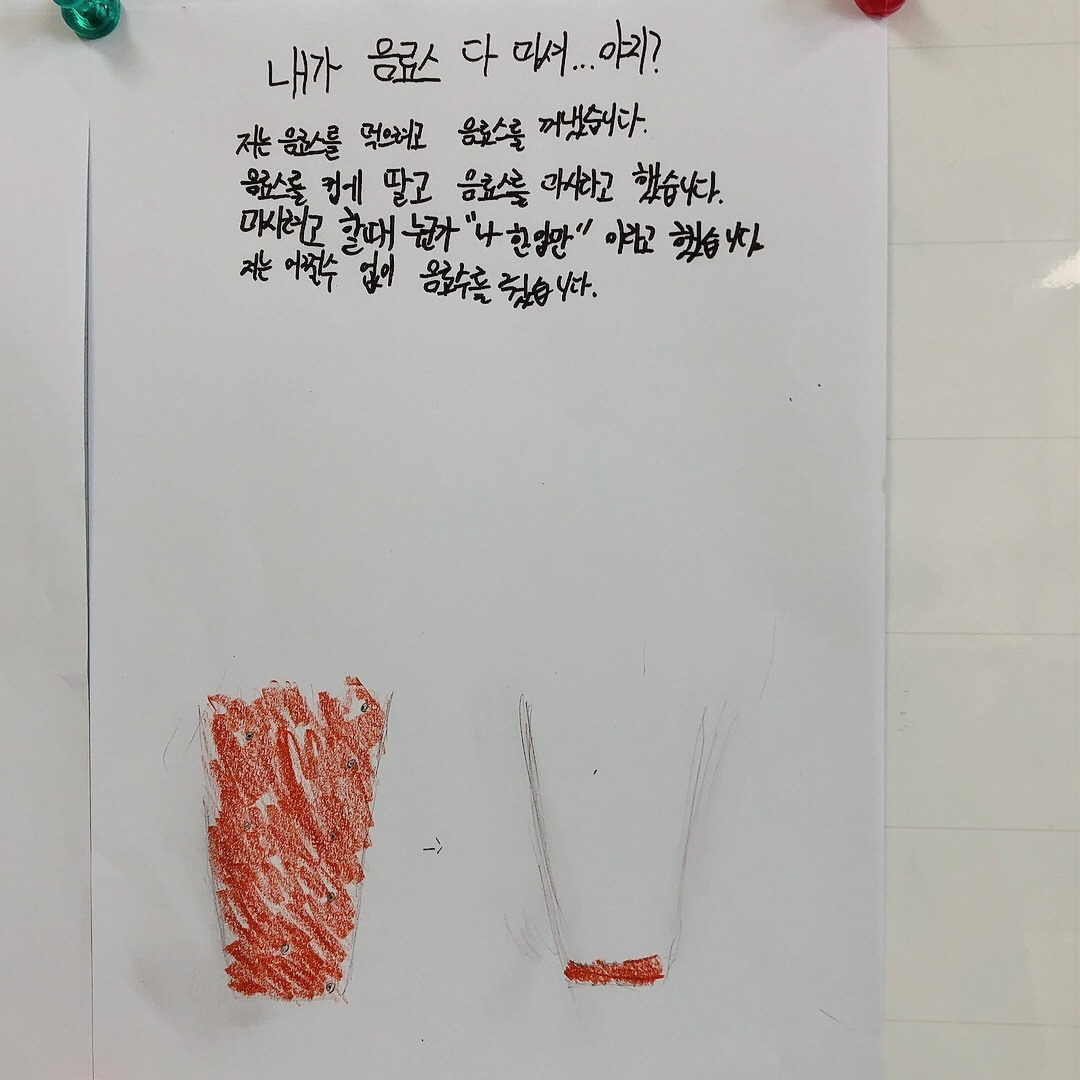 내가 음료스 다 마셔...야지?
저는 음료스를 먹으려고 음료스를 꺼냈습니다.
음료스를 컵에 딸고 음료스를 마시라고 했습니다.
마시려고 할때 누군가 "나 한입만" 이라고 했습니다.
저는 어쩔수 없이 음료수를 줬습니다.